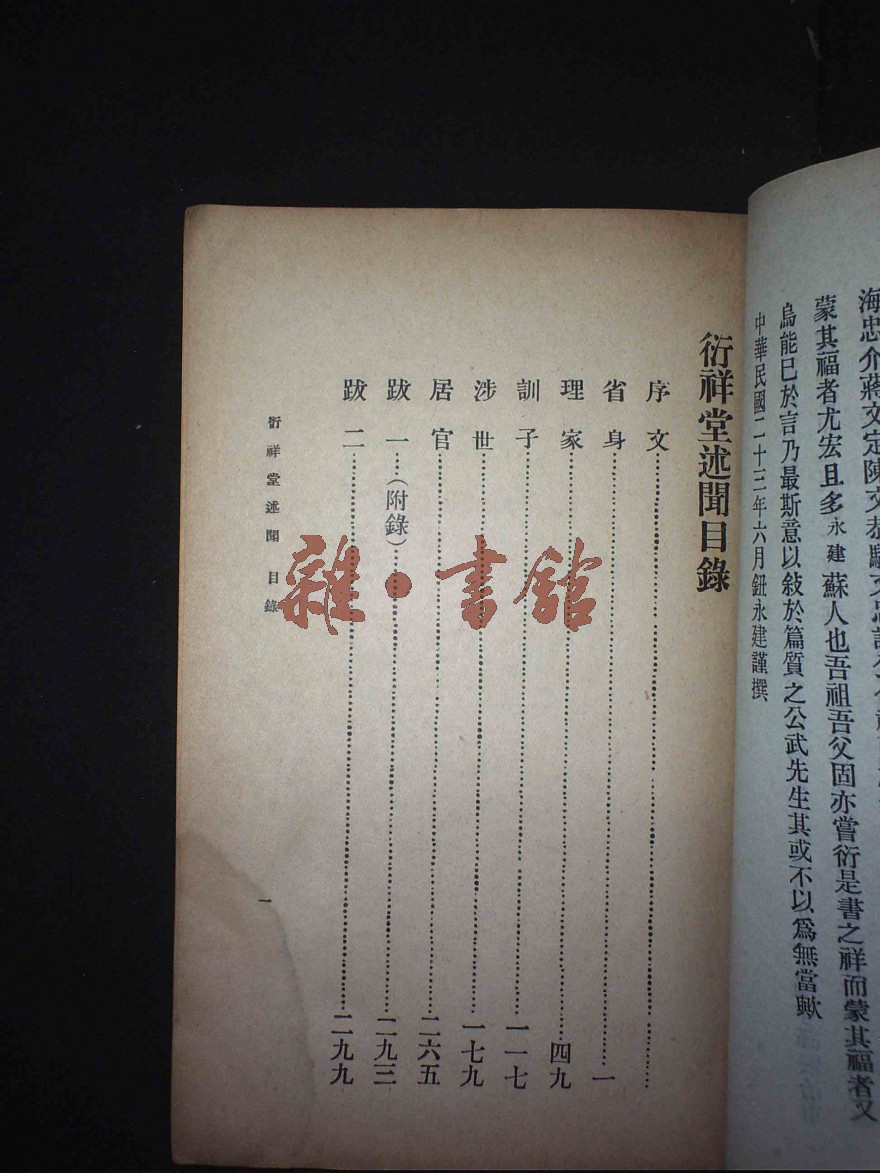 海忠介蔣文定陳文恭駱文忠諸公
蒙其福者尤宏且多永建蘇人也吾祖吾父固亦嘗衍是書之祥而蒙其福者又
烏能已於言乃最斯意以敍於篇質之公武先生其或不以爲無當歟
中華民國二十三年六月鈕永建謹撰
衍祥堂述聞目錄
序文
省身 一
理家 四九
訓子 一一七
涉世 一七九
居官 二六五
跋一(附錄) 二九三
跋二 二九九
衍祥堂述聞 目錄 一
雜·書館